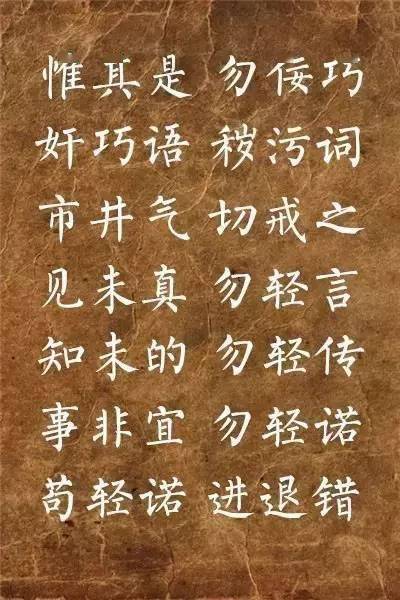 惟其是 勿佞巧
奸巧语 秽污词
市井气 切戒之
见未真 勿轻言
知未的 勿轻传
事非宜 勿轻诺
苟轻诺 进退错